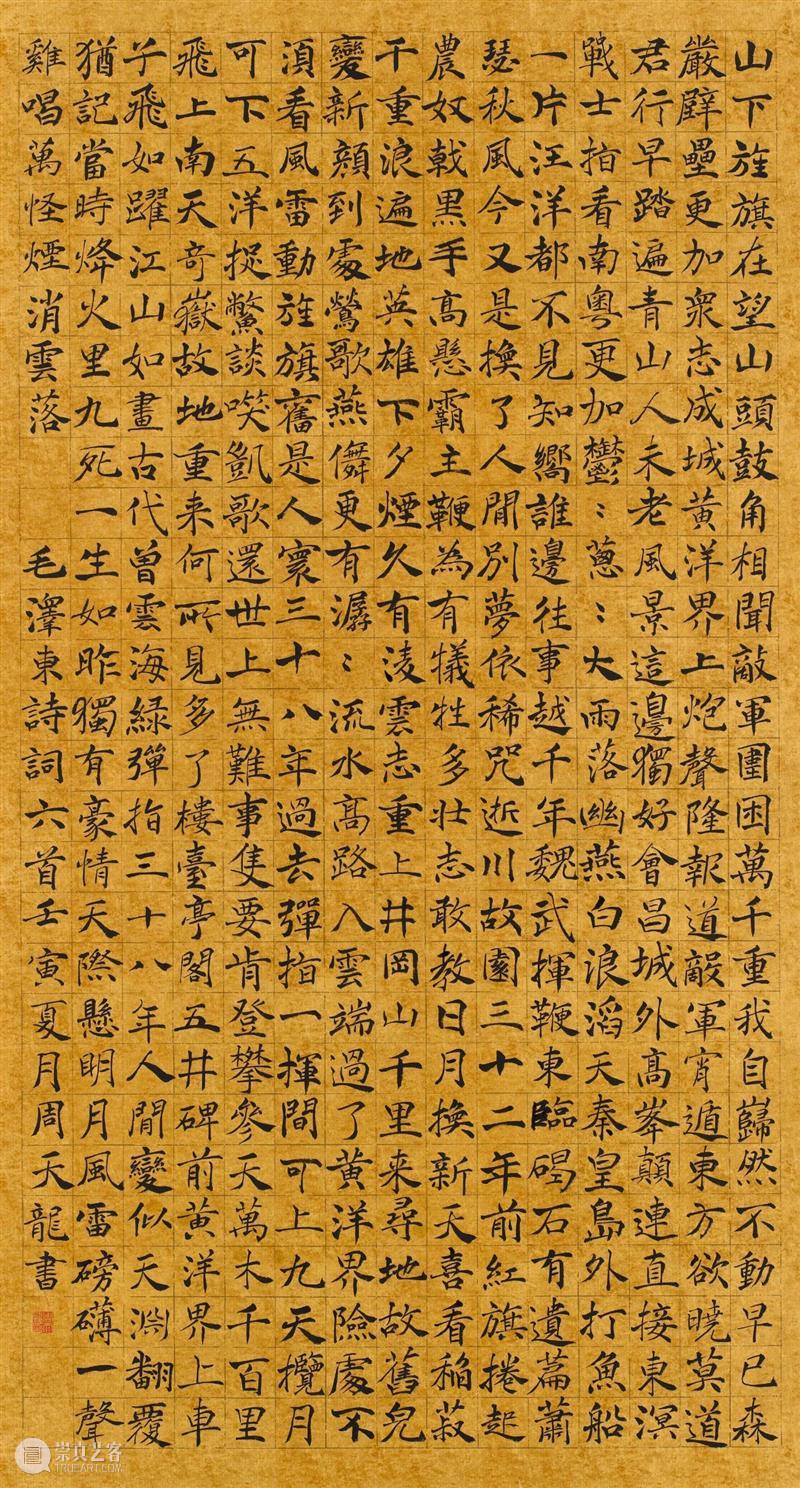 山下旌旗在望山頭鼓角相聞敵軍圍困萬千重我自巋然不動早已森
嚴壁壘更加衆志成城黃洋界上炮聲隆報道敵軍宵遁東方欲曉莫道
君行早踏遍青山人未老風景這邊獨好會昌城外高峯顛連直接東溟
戰士指看南粵更加鬱:蔥:大雨落幽燕白浪滔天秦皇島外打魚船
一片汪洋都不見知嚮誰邊往事越千年魏武揮鞭東臨碣石有遺篇蕭
瑟秋風今又是換了人間別夢依稀咒逝川故園三十二年前紅旗捲起
農奴戟黑手高懸霸主鞭為有犧牲多壯志敢教日月換新天喜看稻菽
千重浪遍地英雄下夕煙久有凌雲志重上井岡山千里来尋地故舊皃
變新顏到處鶯歌燕儛更有潺:流水高路入雲端過了黃洋界險處不
須看風雷動旌旗奮是人寰三十八年過去彈指一揮間可上九天攬月
可下五洋捉鱉談笑凱歌還世上無難事隻要肯登攀參天萬木千百里
飛上南天奇嶽故地重来何所見多了樓臺亭閣五井碑前黃洋界上車
子飛如躍江山如畫古代曾雲海綠彈指三十八年人間變似天淵翻覆
猶記當時烽火里九死一生如昨獨有豪情天際懸明月風雷磅礴一聲
雞唱萬怪煙消雲落
毛澤東詩詞六首壬寅夏月周天龍書
崇真艺客
TRUEART.COM